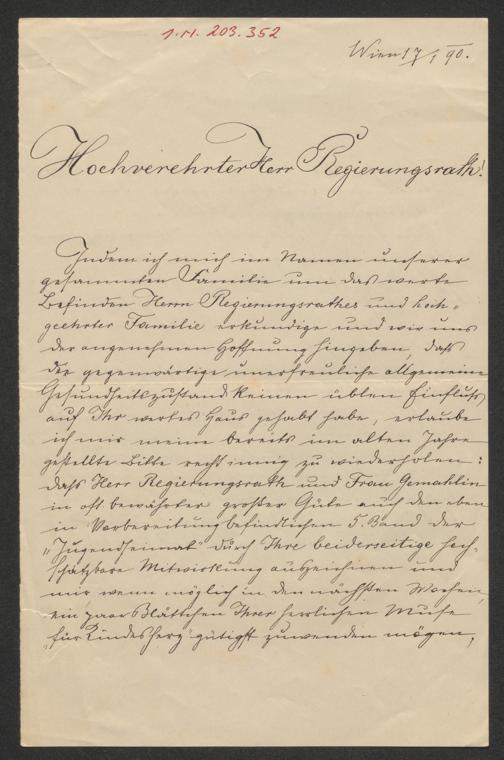 I.N. 203.352
Wien 17/1 90.
Hochverehrter Herr Regierungsrath!
Indem ich mich im Namen unserer
gesammten Familie um das werte
Befinden Herrn Regierungsrathes und hoch-
geehrter Familie erkundige und wir uns
der angenehmen Hoffnung hingeben, daß
der gegenwärtige unerfreuliche allgemeine
Gesundheitszustand keinen üblen Einfluß
auf Ihr wertes Haus gehabt habe, erlaube
ich mir meine bereits im alten Jahre
gestellte Bitte recht innig zu wiederholen:
daß Herr Regierungsrath und Frau Gemahlin
in oft bewährter großer Güte auch den eben
in Vorbereitung befindlichen 5. Band der
„Jugendheimat" durch Ihre beiderseitige hoch-
schätzbare Mitwirkung auszeichnen und
mir wenn möglich in den nächsten Wochen
ein paar Blättchen Ihrer herrlichen Muse
für Kindesherz gütigst zuwenden mögen,